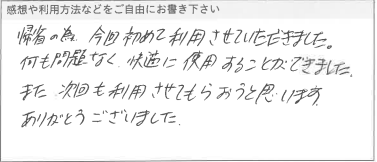 感想や利用方法などをご自由にお書き下さい
帰省の為、今回初めて利用させていただきました。
何も問題なく、快適に使用することができました。
また 次回も利用させてもらおうと思います。
ありがとうございました。